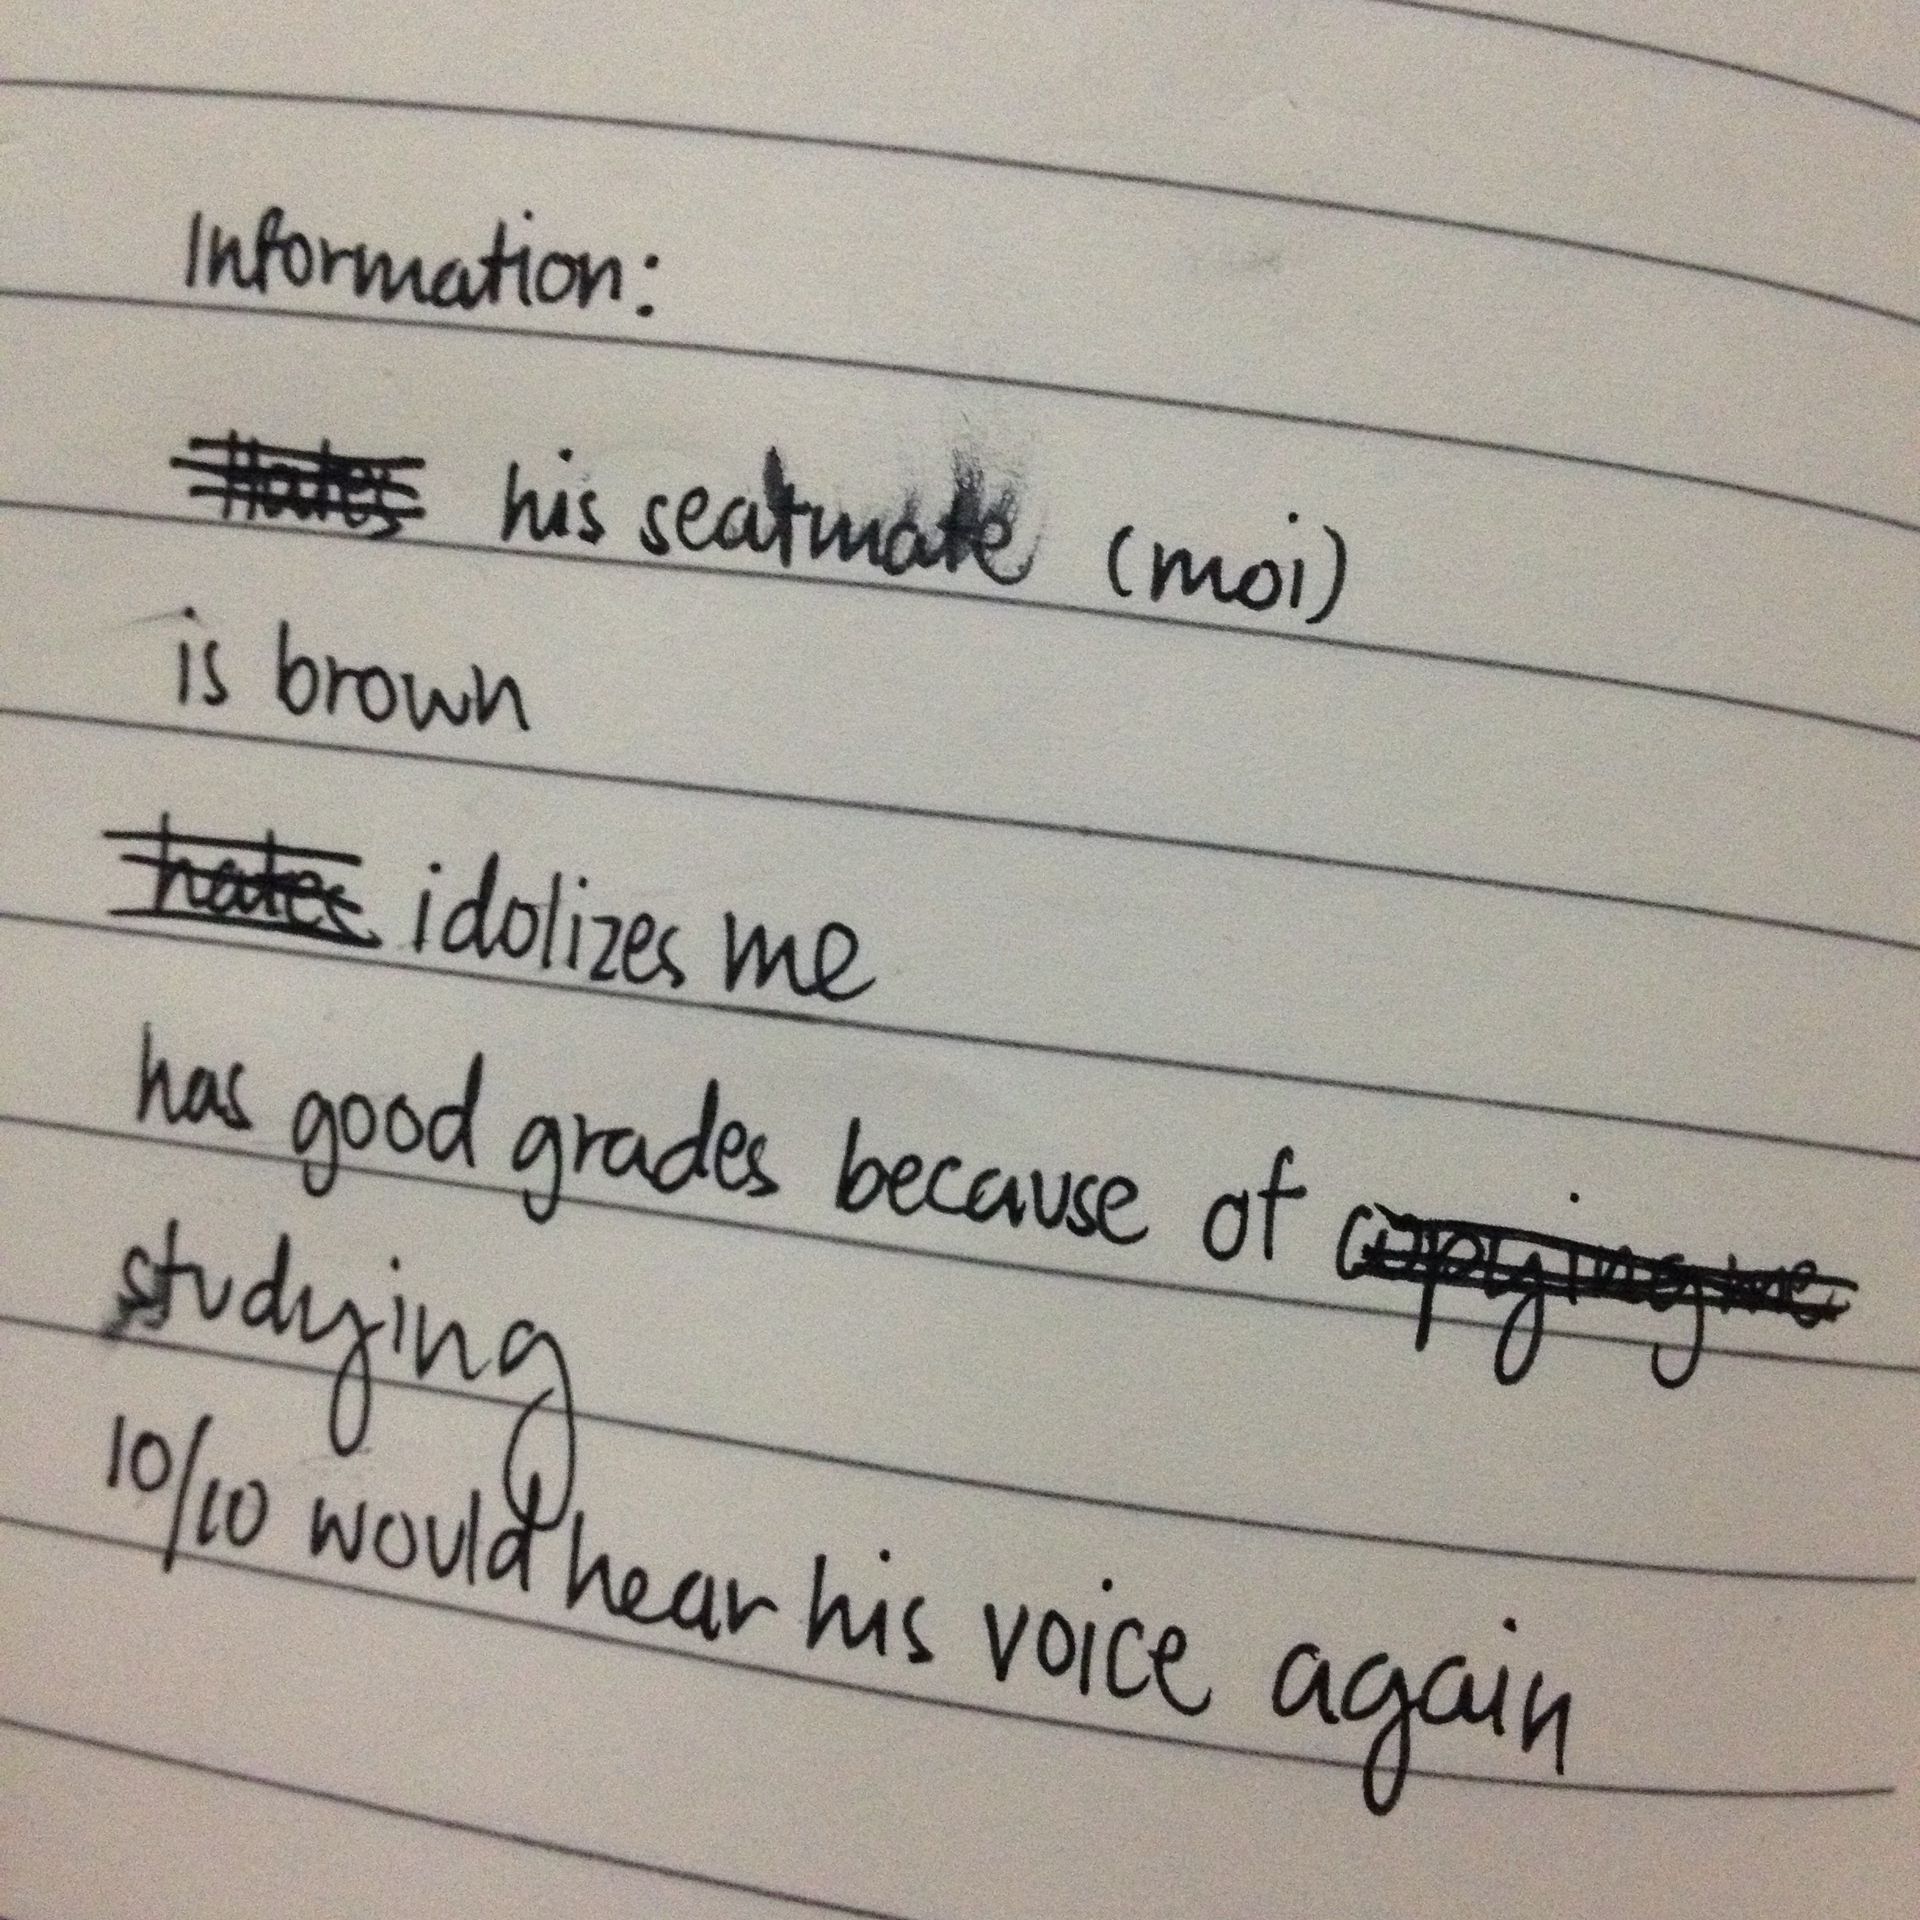 Information:
Hates his seatmate (moi)
is brown
hates idolizes me
has good grades because of copying me
studying
10/10 would hear his voice again